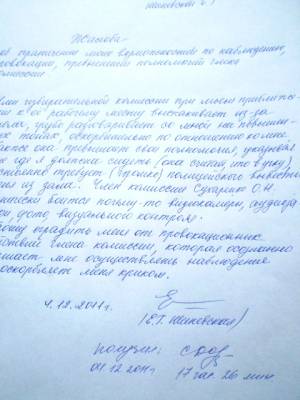 Жалоба-
на пресечение моих возможностей по наблюдению,
провокации, превышений полномочий члена
комиссии
избирательной комиссии при моем приближе-
к её рабочему месту выскакивает из-за
грубо разговаривает со мной на повышен-
тонах, оскорбительно по отношению ко мне.
она превышает свои полномочия, указывая
где я должна сидеть (она считает, что в углу),
требует (громко) полицейского вывести
из зала. Член комиссии Сухаренко О.Н.
боится почему-то видеокамеры, аудиоза-
фото, визуального контроля.
оградить меня от провокационных
члена комиссии, которая осознанно
мешает мне осуществлять наблюдения
оскорбляет меня криком.
4.12.2011г.
(Е.Т. Жиковская)
получен:
04.12.2011 17 час. 26 мин